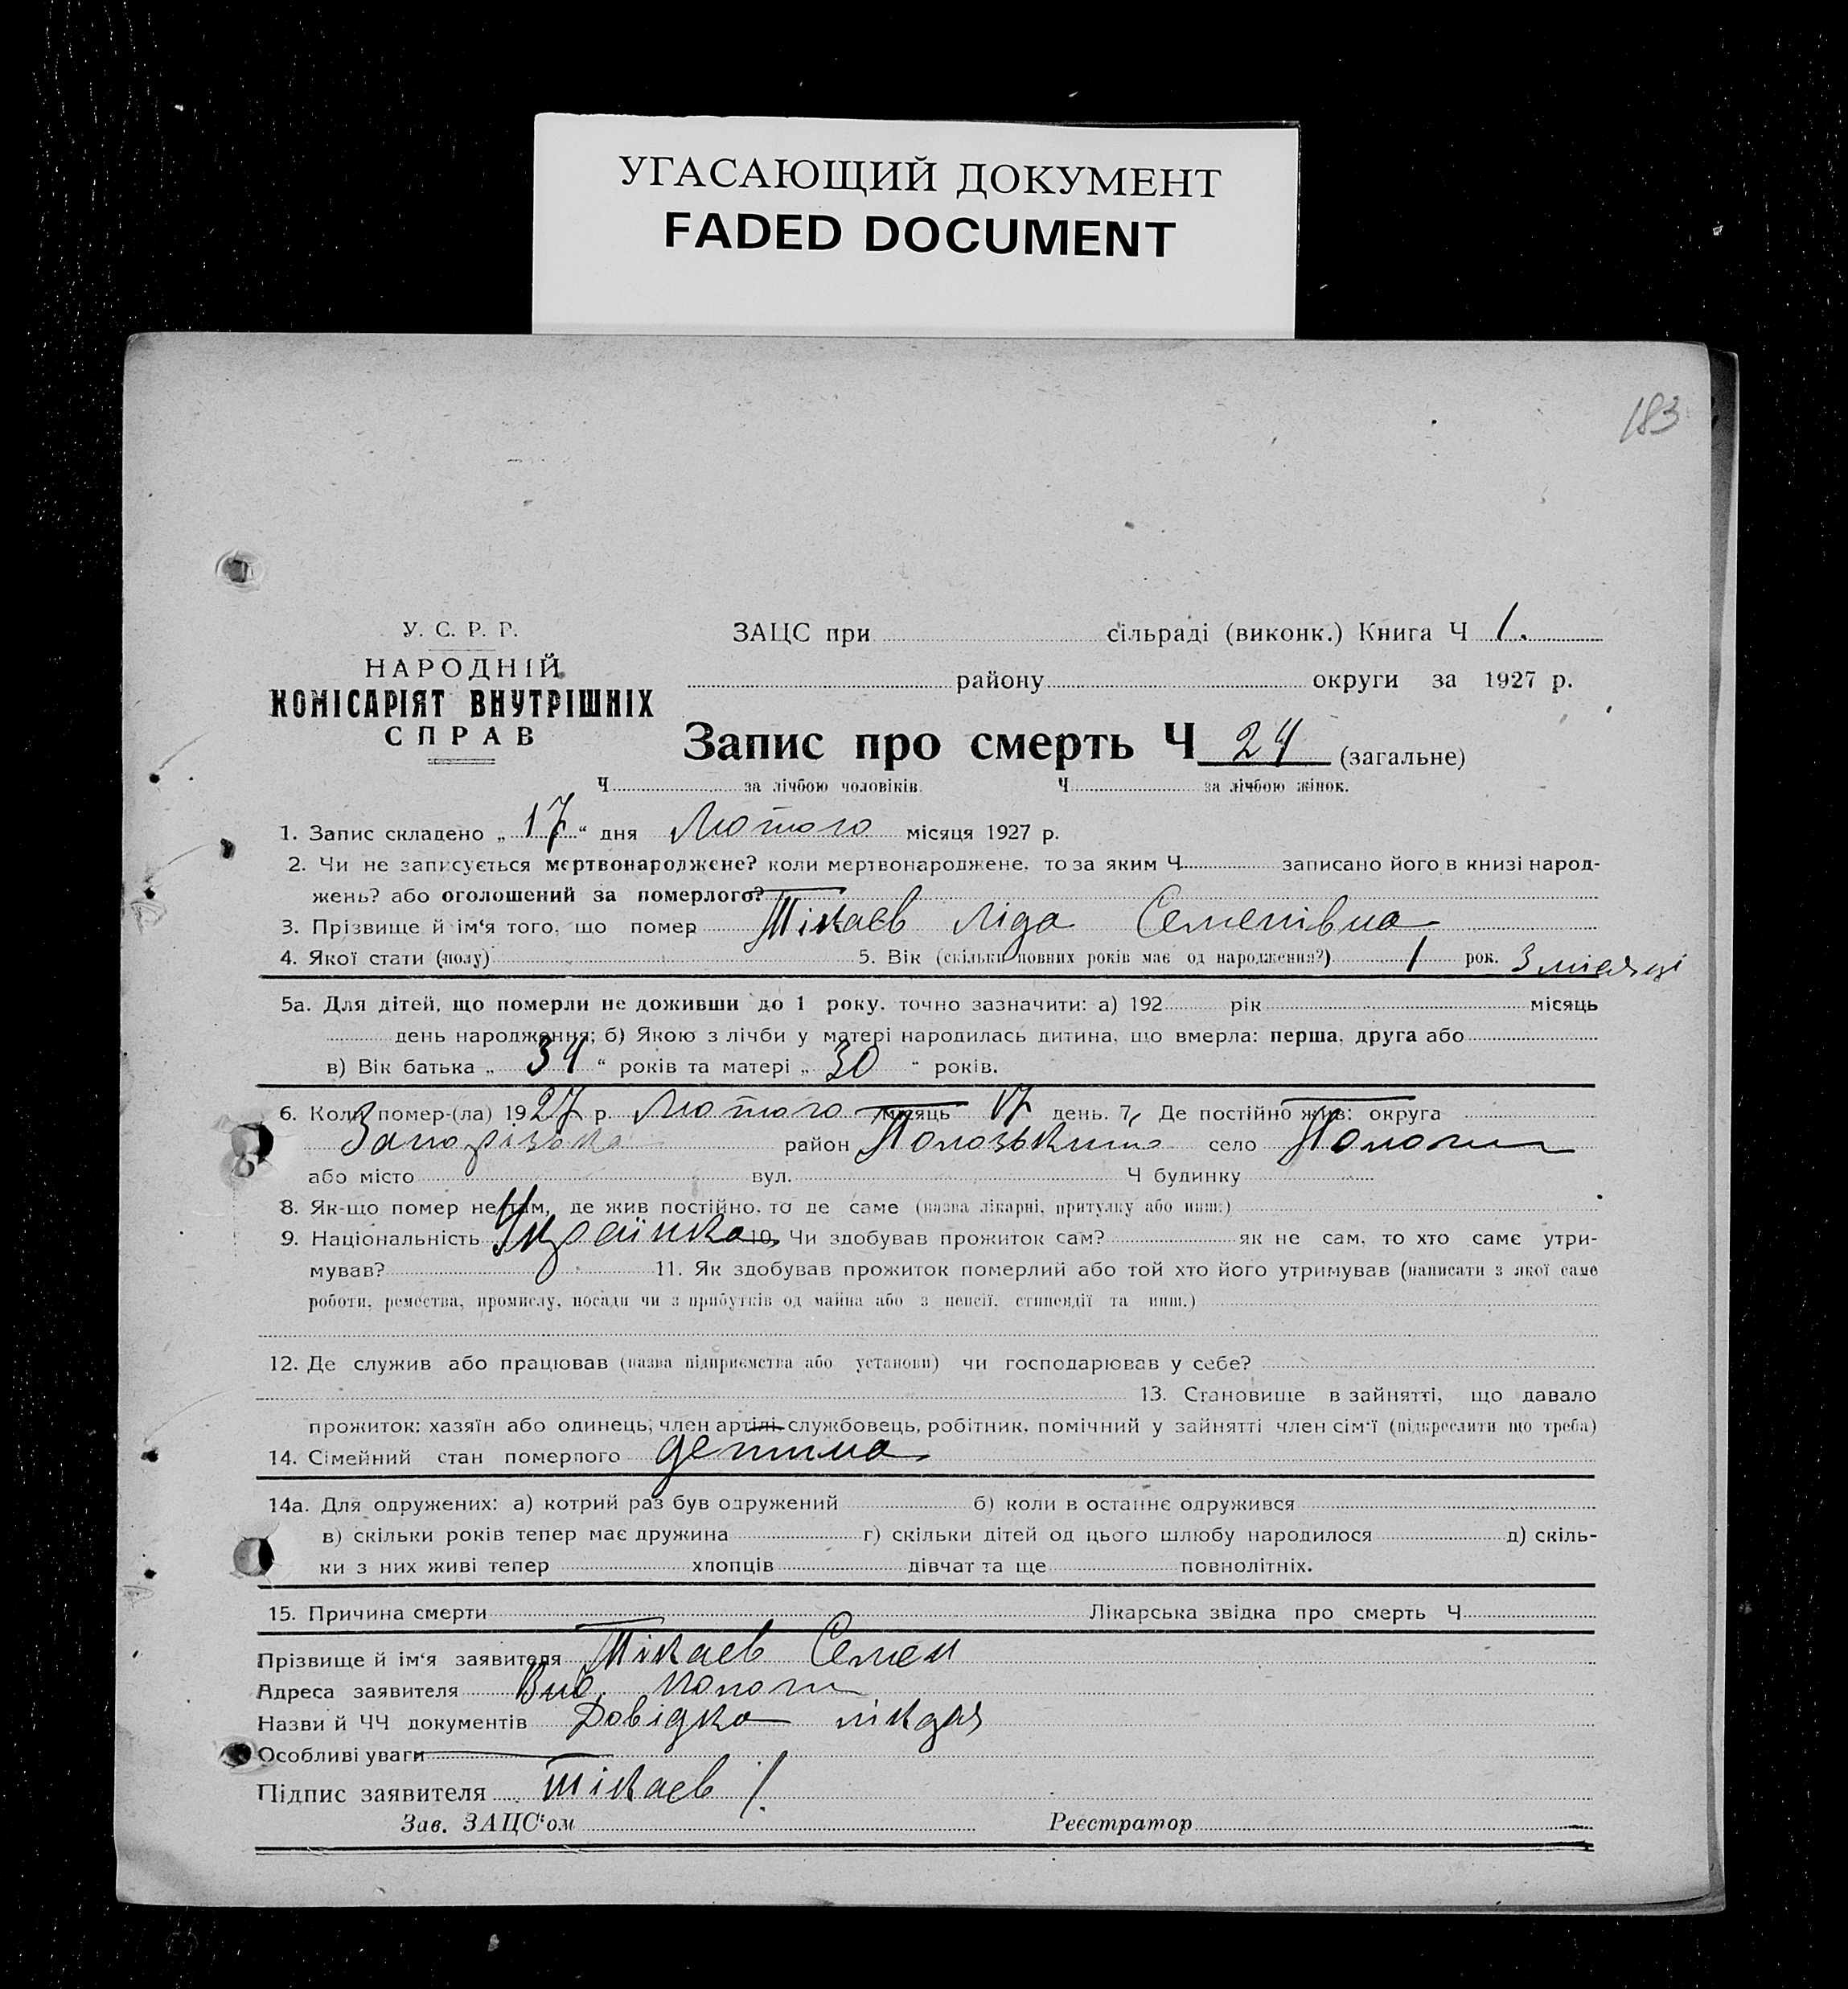 УГАСАЮЩИЙ ДОКУМЕНТ
FADED DOCUMENT
183
У. С. Р. Р.
НАРОДНІЙ
КОМІСАРІЯТ ВНУТРІШНІХ
СПРАВ
ЗАЦС при сільраді (виконк.) Книга Ч 1.
району округи за 1927 р.
Запис про смерть Ч 24 (загальне)
Ч за лічбою чоловіків. Ч за лічбою жінок.
1. Запис складено „17“ дня Лютого місяця 1927 р.
2. Чи не записується мертвонароджене? коли мертвонароджене, то за яким Ч записано його в книзі народ-
жень? або оголошений за померлого?
3. Прізвище й ім‘я того, що помер Тікаєв Ліда Семенівна
4. Якої стати (полу) 5. Вік (скільки повних років має од народження?) 1 рок. 3 місяці
5а. Для дітей, що померли не доживши до 1 року, точно зазначити: а) 192 рік місяць
день народження; б) Якою з лічби у матері народилась дитина, що вмерла: перша, друга або
в) Вік батька „34“ років та матері „30“ років.
6. Коли помер-(ла) 1927 р. Лютого місяць 17 день. 7. Де постійно жив: округа
Запорізька район Пологський село Пологи
або місто вул. Ч будинку
8. Як-що помер не там, де жив постійно, то де саме (назва лікарні, притулку або инш.)
9. Національність Українка 10. Чи здобував прожиток сам? як не сам, то хто саме утри-
мував? 11. Як здобував прожиток померлий або той хто його утримував (написати з якої саме
роботи, ремества, промислу, посади чи з прибутків од майна або з пенсії, стипендії та инш.)
12. Де служив або працював (назва підприємства або установи) чи господарював у себе?
13. Становище в зайнятті, що давало
прожиток: хазяїн або одинець, член артілі, службовець, робітник, помічний у зайнятті член сім‘ї (підкреслити що треба)
14. Сімейний стан померлого детина
14а. Для одружених: а) котрий раз був одружений б) коли в останнє одружився
в) скільки років тепер має дружина г) скільки дітей од цього шлюбу народилося д) скіль-
ки з них живі тепер хлопців дівчат та ще повнолітніх.
15. Причина смерти Лікарська звідка про смерть Ч
Прізвище й ім‘я заявителя Тікаев Семен
Адреса заявителя Пологи
Назви й ЧЧ документів Довідка лікаря
Особливі уваги
Підпис заявителя Тікаев
Зав. ЗАЦС‘ом Реєстратор